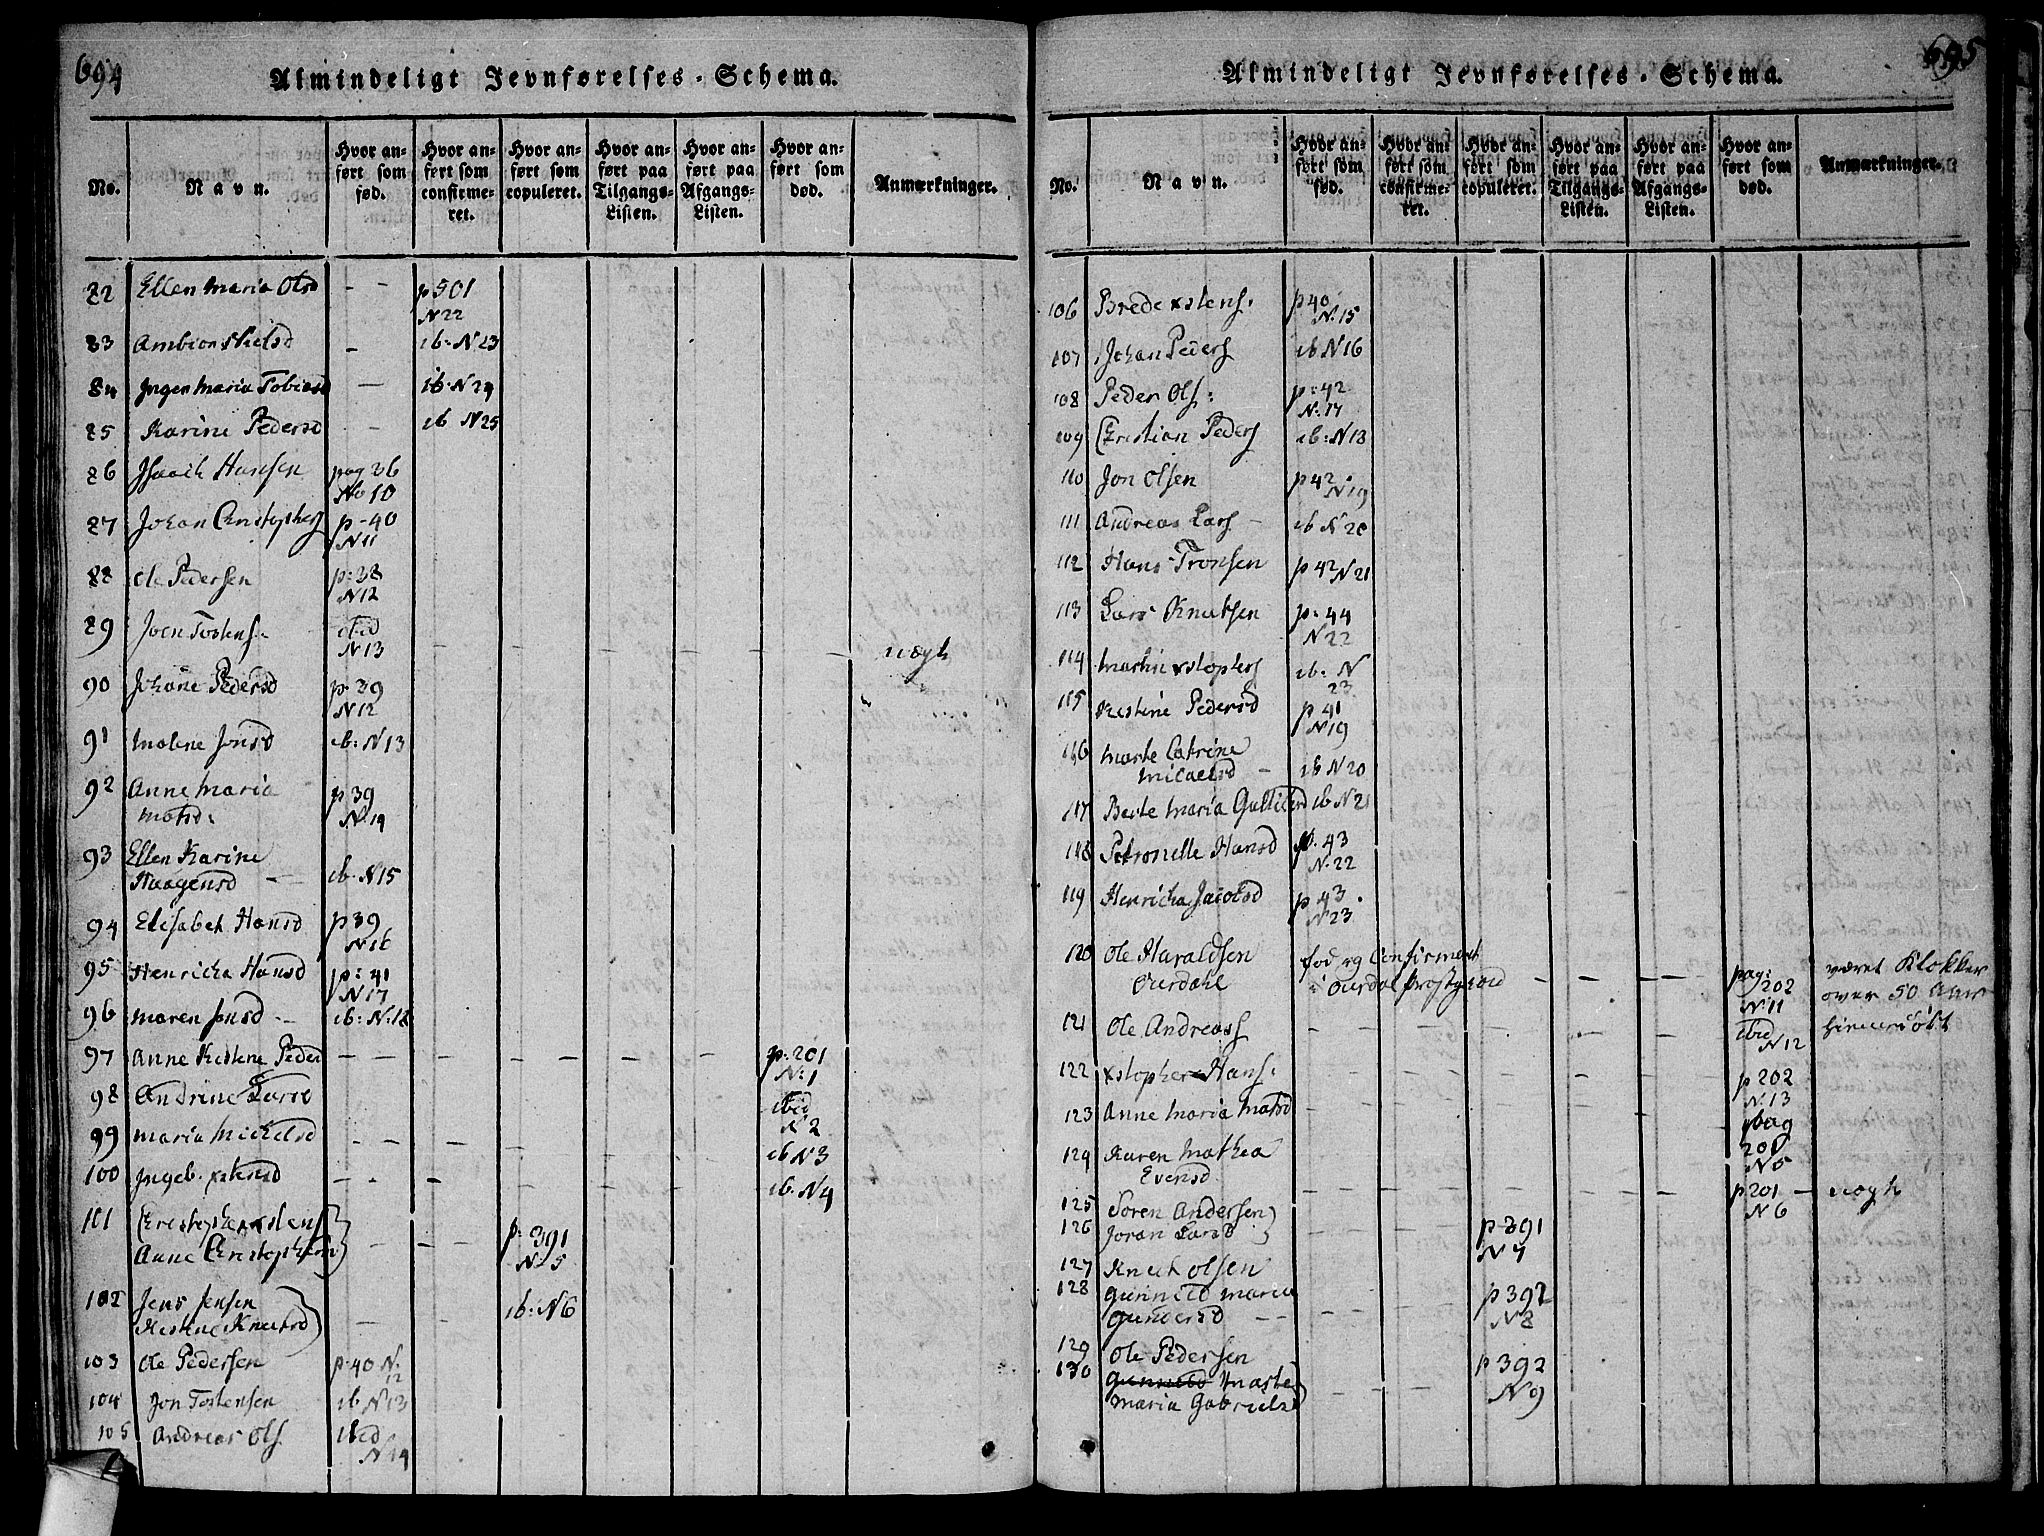 694
Almindeligt Jevnførelses-Schema.
No.
Navn.
Hvor an-
ført som
fød.
Hvor an-
ført som
confirme-
ret.
Hvor an-
ført som
copuleret.
Hvor an-
ført paa
Tilgangs-
Listen.
Hvor an-
ført paa
Afgangs-
Listen.
Hvor an-
ført som
død.
Anmærkninger.
82 Ellen Maria Olsd - - p 501
N 22
83 - ib. N 23
84 Ingen Maria Tobiasd - ib. N 24
85 Karine Pedersd - ib N 25
86 Isaach Hansen pag 36
No 10
87 Johan Christophers p - 40
N 11
88 Ole Pedersen p: 38
N 12
89 Joen Tostens. ibid
N 13 - - - - - -
90 Johane Pedersd p. 39
N 12
91 Malene Jonsd ib: N 13
92 Anne Maria
Matsd: p 39
N. 14
93 Ellen Karine
Haagensd - ib. N 15
94 Elisabet Hansd p 39
N 16
95 Henricha Hansd p: 41
N 17
96 Maren Jonsd - ib: N. 18
97 Anne Kistene Peder - - - - - - p. 201
N. 1
98 Andrine Larsd ibid
N 2
99 Maria Michelsd - - - - - ib N 3
100 Ingeb. xstensd - - - - - ib. N 4
101 Christopher xstens
Anne Christophersd - - p: 391
N. 5
102 Jens Jensen
Kistene Knutsd - - ib: N 6
103 Ole Pedersen p. 40 N.
12
104 Jon Tostensen ib N 13
105 Andreas Ols ibid
N 14
695
Almindeligt Jevnførelses-Schema.
No.
Navn.
Hvor an-
ført som
fød.
Hvor an-
ført som
confirme-
ret.
Hvor an-
ført som
copuleret.
Hvor an-
ført paa
Tilgangs-
Listen.
Hvor an-
ført paa
Afgangs-
Listen.
Hvor an-
ført som
død.
Anmærkninger.
106 Brede xstens. p 40
N. 15
107 Johan Peders ib N 16
108 Peder Ols: p: 42
N. 17
109 Christian Peders ib: N 18
110 Jon Olsen p 42.
N 19
111 Andreas Lars - ib N 20
112 Hans Tronsen p 42 N 21
113 Lars Knutsen p: 44
N 22
114 Martin xstophers ib: N
23
115 Kistine Pedersd p 41
N 19
116 Marte Catrine
Micaelsd - ib N 20
117 Berte Maria ib N 21
118 Petronelle Hansd p. 43
N. 22
119 Henricha Jacobsd p 43.
N 23
120 Ole Haraldsen
Ourdahl fød og Confirmert
i Ourdal Prostgield - - - pag:
202
N. 11 været Klokker
over 50 Aar
121 Ole Andreass - - - - - - ibid
N 12
122 xstopher Hans. - p 202
N. 13
123 Anne Maria Matsd - pag
201
N 5
124 Karen Mathea
Evensd - - - - - p 201 -
N 6
125 Soren Andersen
126 Joran Larsd p 391
N 7
127 Knut Olsen
128 Gunnild Maria
Gundersd - - p 392
N 8
129 Ole Pedersen
130 Gunnild Maste
Maria Gabriels - - p 392
N 9